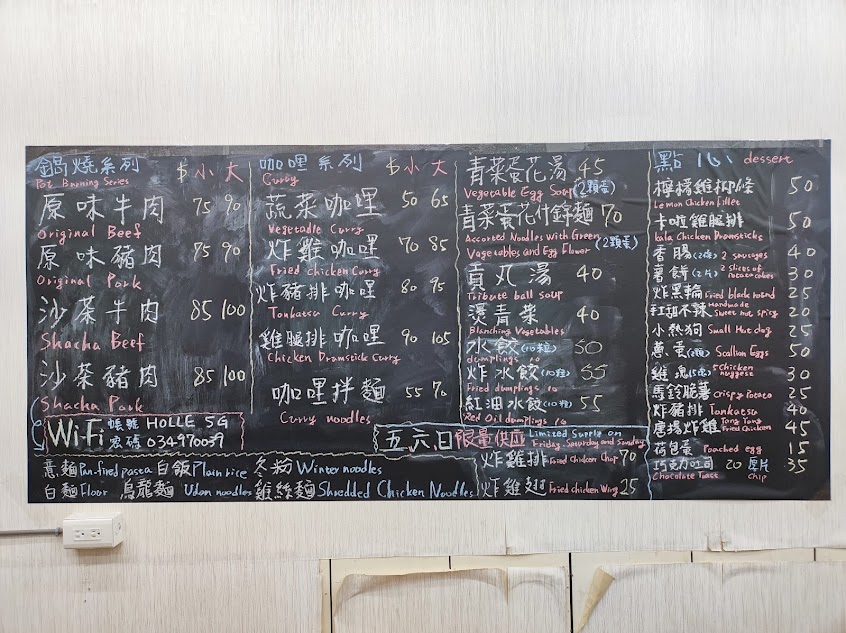 鍋燒系列 $ 小 大
Pot Burning Series
原味牛肉 75 90
Original Beef
原味豬肉 75 90
Original Pork
沙茶牛肉 85 100
Shacha Beef
沙茶豬肉 85 100
Shacha Pork
WiFi 帳號 HOLLE 5G
密碼 034970039
咖哩系列 $ 小 大
Curry
蔬菜咖哩 50 65
Vegetable Curry
炸雞咖哩 70 85
Fried chicken Curry
炸豬排咖哩 80 95
Tonkatsu Curry
雞腿排咖哩 90 105
Chicken Dramstick Curry
咖哩拌麵 55 70
Curry noodles
意麵 Pan-fired pasta 白飯 Plain rice 冬粉 Winter noodles
白麵 Floor 烏龍麵 Udon noodles 雞絲麵 Shredded Chicken Noodles
青菜蛋花湯 45
Vegetable Egg Soup (2顆蛋)
青菜蛋花什錦麵 70
Assorted Noodles with Green
Vagetables and Egg Flower (2顆蛋)
貢丸湯 40
Tribute ball soup
燙青菜 40
Blanching Vegetables
水餃(10粒) 50
dumplings 10
炸水餃(10粒) 55
Fried dumplings 10
紅油水餃(10粒) 55
Red Oil dumplings 10
五六日限量供應 Limited Supply on
Friday-Saturday and Sunday
炸雞排 Fried Chicken Chop 70
炸雞翅 Fried chicken Wing 25
點心 dessert
檸檬雞柳條 50
Lemon Chicken fillet
卡啦雞腿排 50
kala Chicken Dramsticks
香腸(2條) 2 sausages 40
薯餅(2片) 2 slices of potato cakes 30
炸黑輪 Fried black hound 25
甜不辣 Handmade Sweet not spicy 20
小熱狗 Small Hot dog 25
蔥蛋(2顆) Scallion Eggs 50
雞塊(5塊) 5 Chicken nuggets 30
馬鈴脆薯 Crispy Potato 25
炸豬排 Tonkatsu 40
唐揚炸雞 Tang Tang Fried Chicken 45
荷包蛋 Poached egg 15
巧克力吐司 20 厚片 35
Chocolate Toast chip